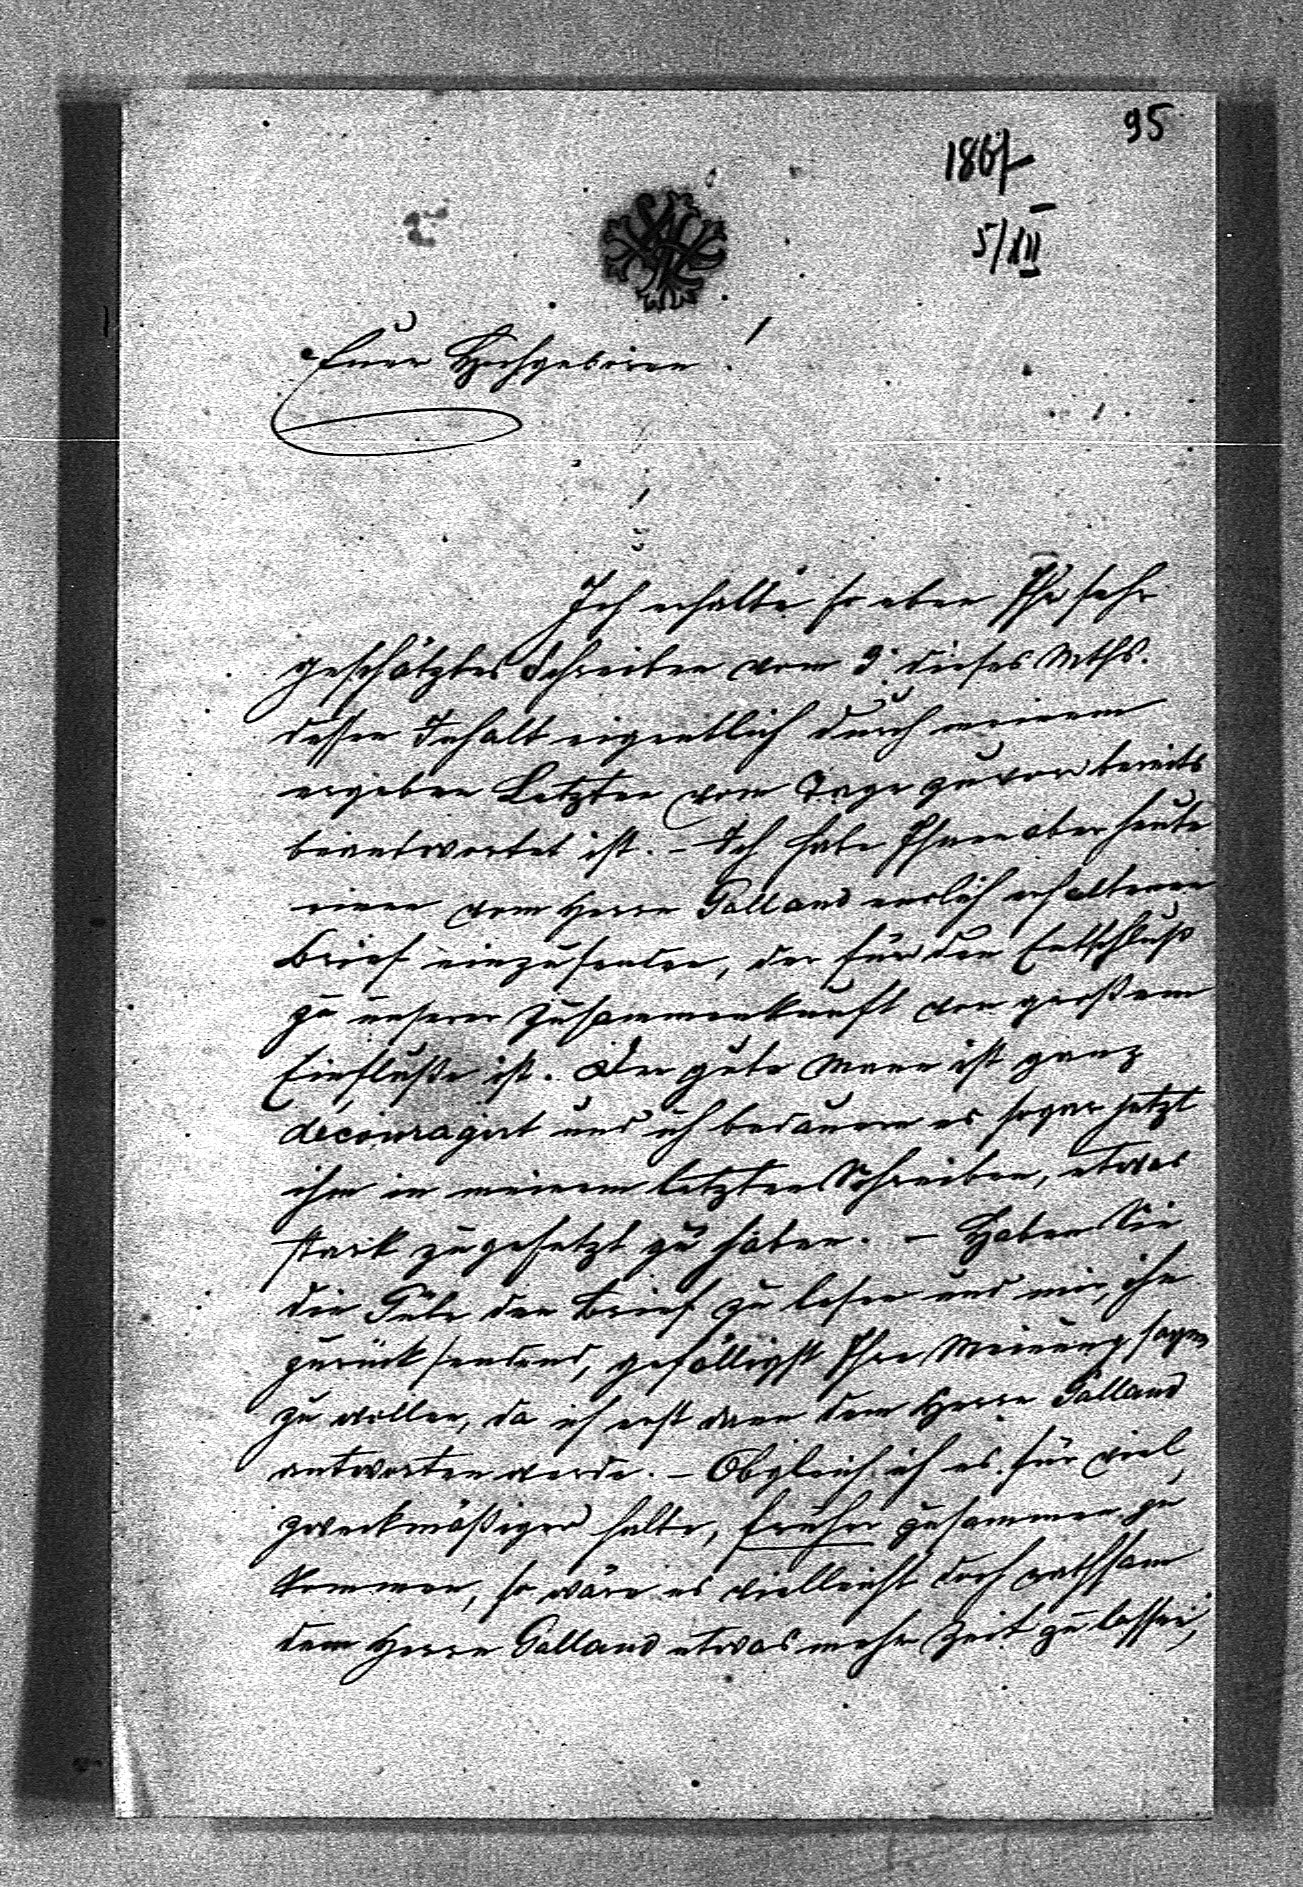 95
1867
5/XII
Euer Hochgeboren!
Ich erhalte so eben Ihr sehr
geschätztes Schreiben vom 3. dieses Mths.
dessen Inhalt eigentlich durch meinem
ergeben Letzten vom Tage zuvor bereits
beantwortet ist. – Ich habe Ihnen aber heute
einen vom Herrn Galland neulich erhaltenen
Brief einzusenden, der für den Entschluß
zu unserer Zusammenkunft von großem
Einfluße ist. Der gute Mann ist ganz
decouragirt und ich bedauere es sogar jetzt
ihm in meinem letzten Schreiben, etwas
stark zugesetzt zu haben. – Haben Sie
die Güte den Brief zu lesen und mir, ihn
zurück sendend, gefälligst Ihre Meinung sagen
zu wollen, da ich erst dann dem Herrn Galland
antworten werde. – Obgleich ich es für viel
zweckmäßiger halte, früher zusammen zu
kommen, so wäre es vielleicht doch rathsam
dem Herrn Galland etwas mehr Zeit zu lassen,